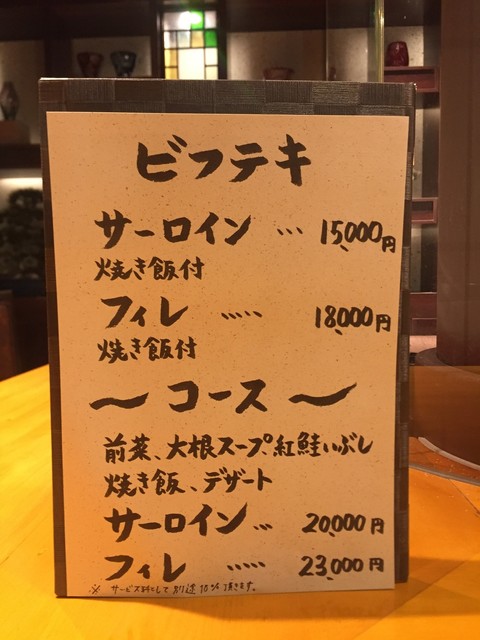 ビフテキ
サーロイン … 15,000円
焼き飯付
フィレ ‥‥‥ 18,000円
焼き飯付
〜 コース 〜
前菜、大根スープ、紅鮭いぶし
焼き飯、デザート
サーロイン … 20,000円
フィレ ‥‥‥ 23,000円
※ サービス料として別途10%頂きます。